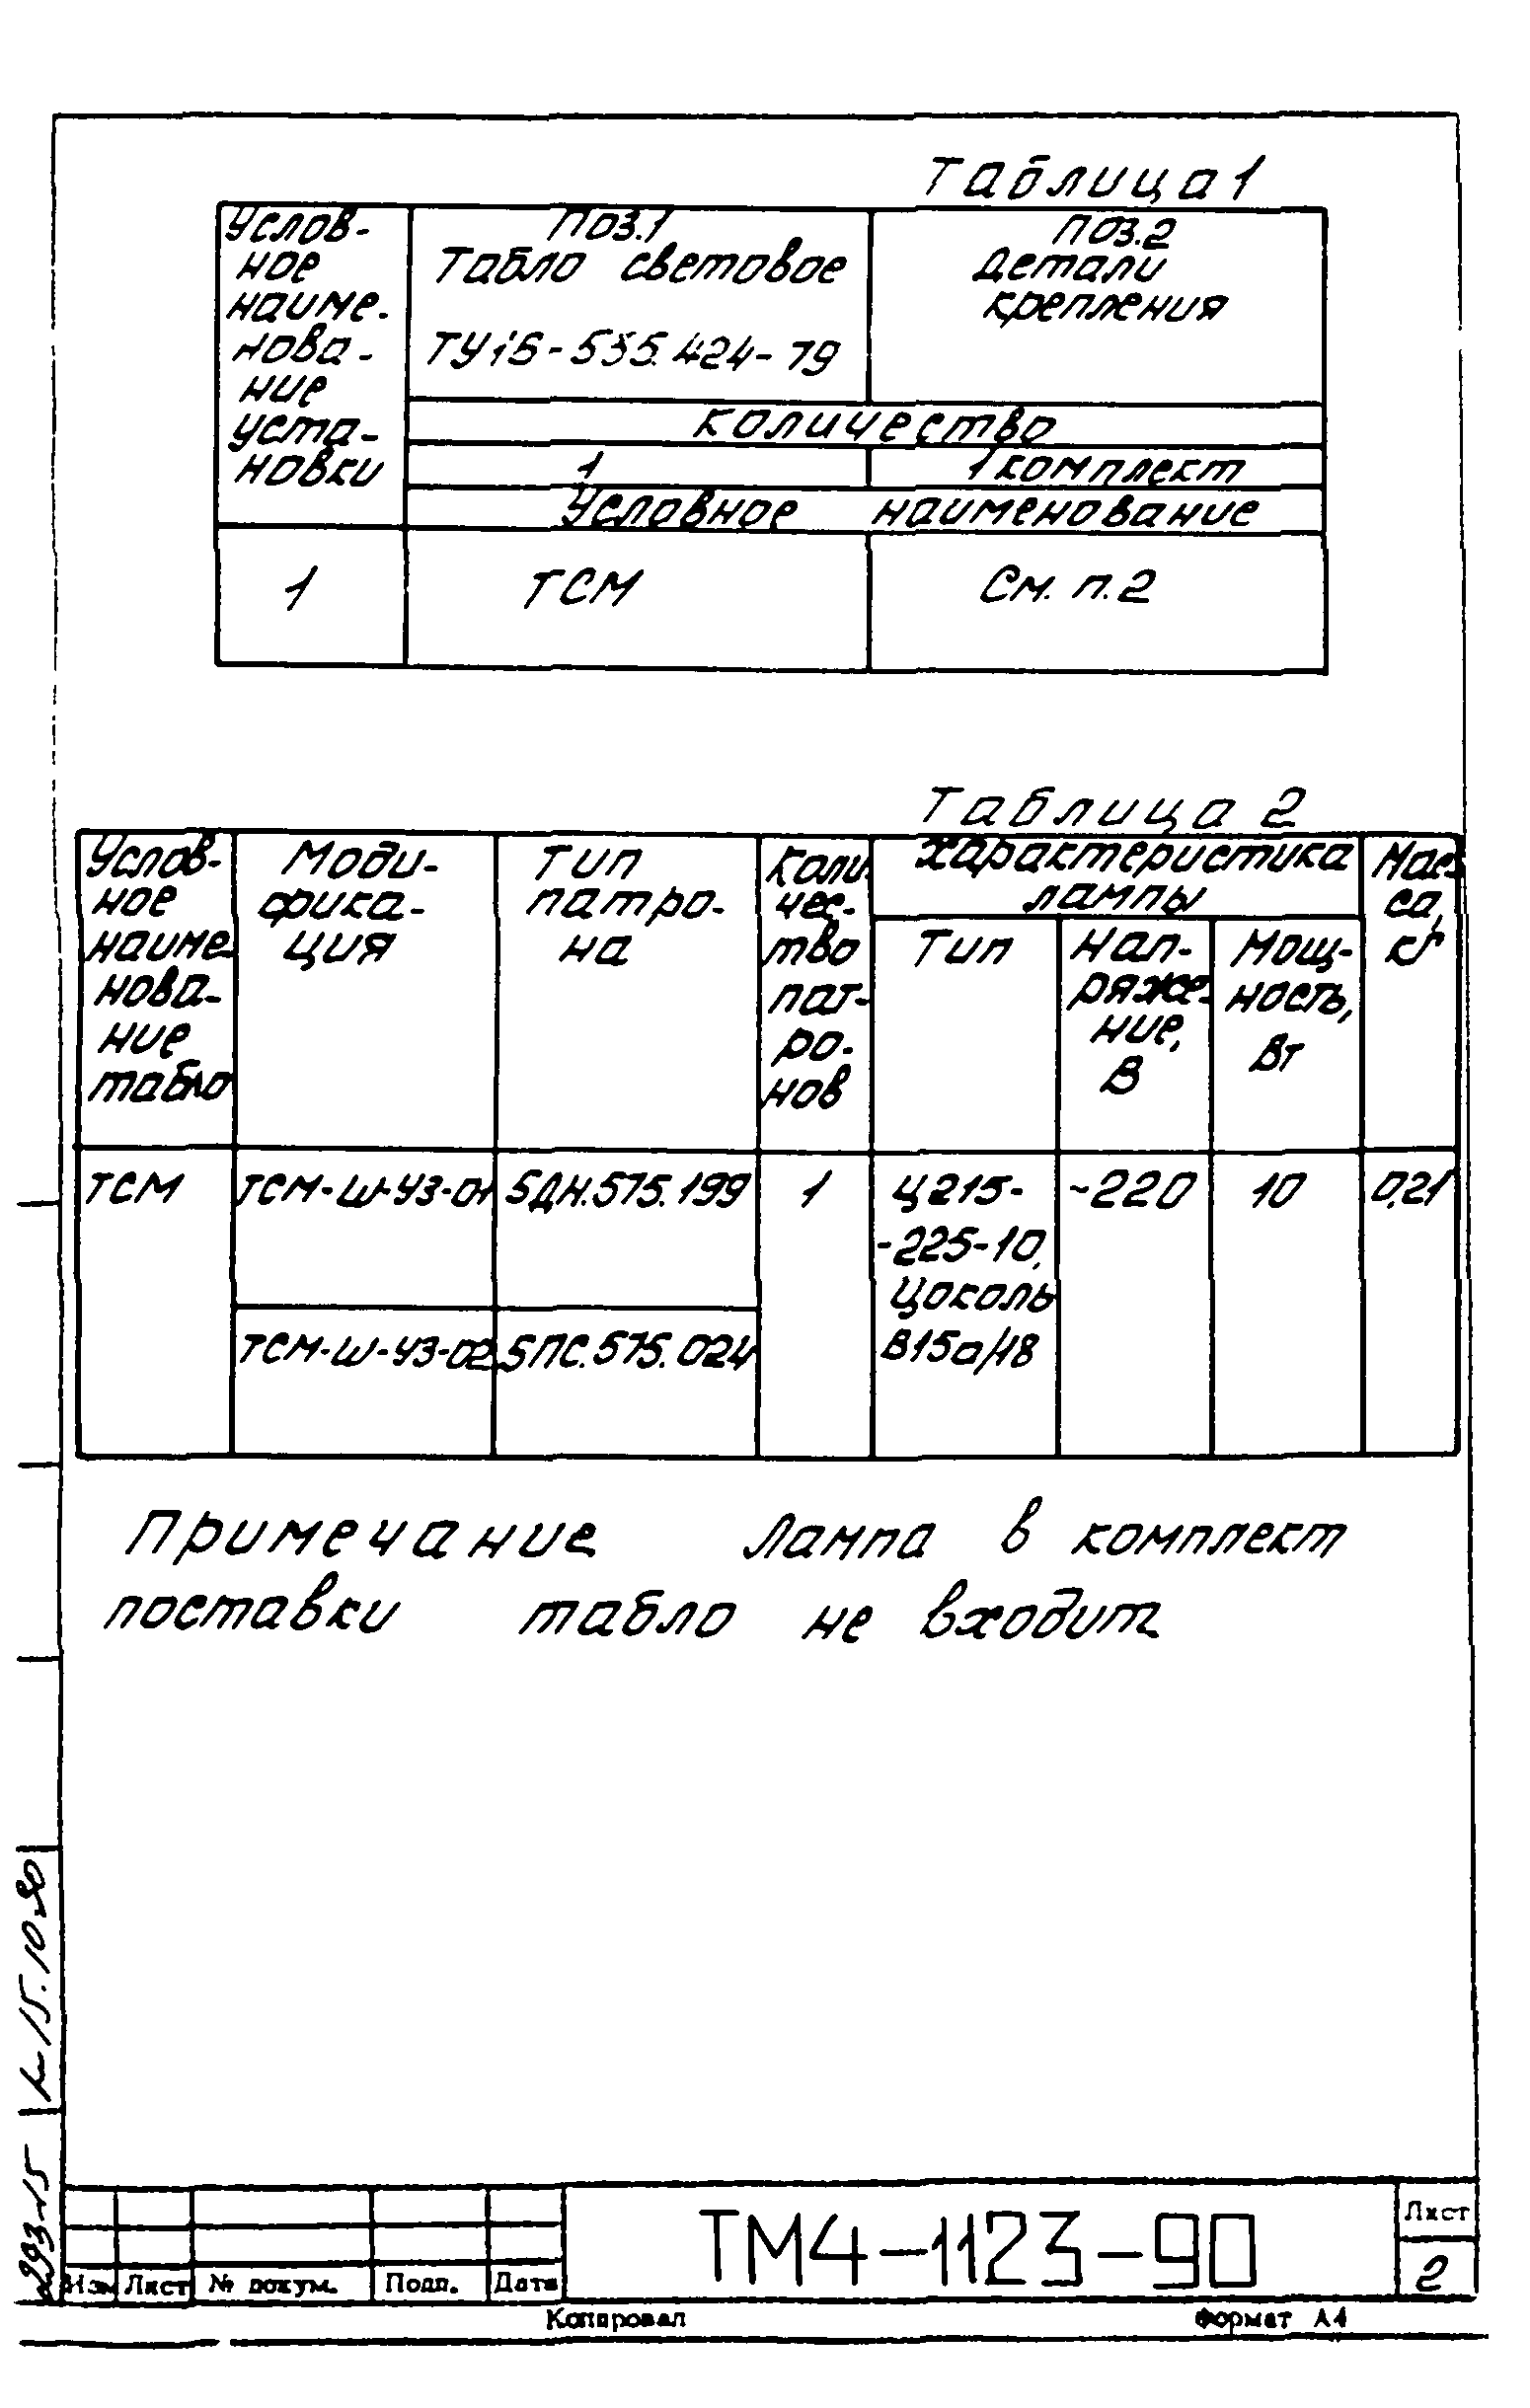 Таблица 1
Услов-
ное
наиме-
нова-
ние
уста-
новки
Поз.1
Табло световое
ТУ16-535.424-79
Поз.2
Детали
крепления
Количество
1
1 комплект
Условное наименование
1
ТСМ
См. п.2
Таблица 2
Услов-
ное
наиме-
нова-
ние
табло
Моди-
фика-
ция
Тип
патро-
на
Коли-
чес-
тво
пат-
ро-
нов
Характеристика
лампы
Тип
Нап-
ряже-
ние,
В
Мощ-
ность,
Вт
Мас-
са,
кг
ТСМ
ТСМ-Ш-У3-01
5ДН.575.199
1
Ц215-
-225-10,
Цоколь
В15а/18
~220
10
0,21
ТСМ-Ш-У3-02
5ПС.575.024
Примечание Лампа в комплект
поставки табло не входит
15.10.90
293-15
Изм Лист № докум. Подп. Дата
ТМ4-1123-90
Лист
2
Копировал
Формат А4